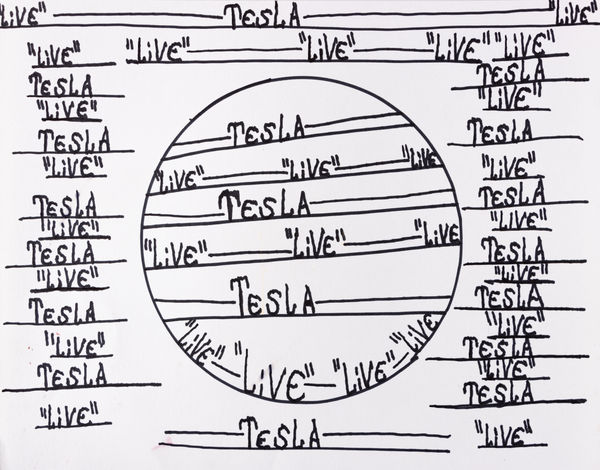 LiVE" TESLA "LiVE"
"LiVE" "LiVE" "LiVE"
"LiVE"
TESLA
"LiVE"
TESLA
"LiVE"
TESLA
"LiVE"
TESLA
"LiVE"
TESLA
"LiVE"
TESLA
"LiVE"
TESLA
"LiVE" "LiVE" "LiVE
TESLA
"LiVE" "LiVE" "LiVE
TESLA
"LiVE" "LiVE" "LiVE" "LiVE"
TESLA
"LiVE"
TESLA
"LiVE"
TESLA
"LiVE"
TESLA
"LiVE"
TESLA
"LiVE"
TESLA
"LiVE"
TESLA
"LiVE"
TESLA
"LiVE"